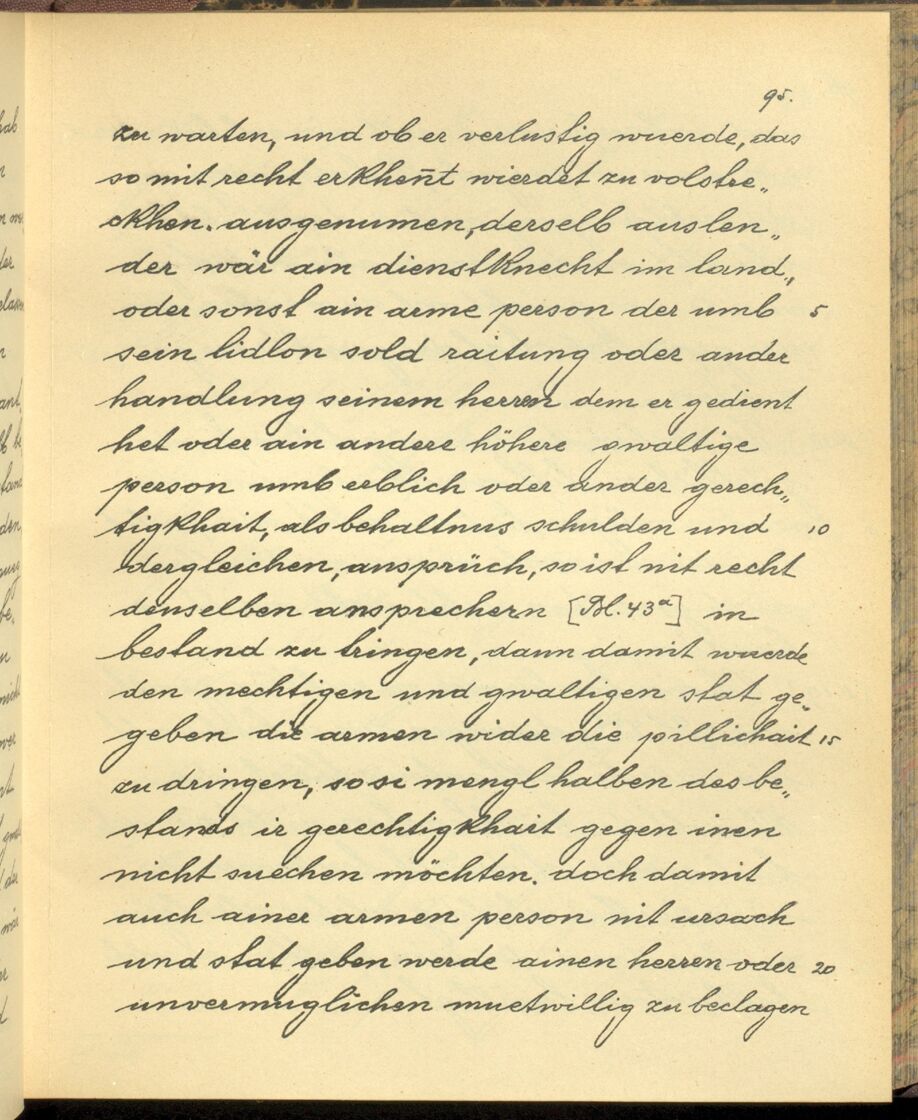 95.
zu warten, und ob er verlustig wuerde, das
so mit recht erkhen̄t wierdet zu volstre„
ckhen. ausgenumen, derselb auslen„
der wär ain dienstknecht im land„
oder sonst ain arme person der umb 5
sein lidlon sold raitung oder ander
handlung seinem herren dem er gedient
het oder ain andere höhere gwaltige
person umb erblich oder ander gerech„
tigkhait, als behaltnus schulden und 10
dergleichen, ansprüch, so ist nit recht
denselben ansprechern [Bl. 43a] in
bestand zu tringen, dann damit wuerde
den mechtigen und gwaltigen stat ge„
geben die armen wider die pillichait 15
zu dringen, so si mengl halben des be„
stands ir gerechtigkhait gegen inen
nicht suechen möchten. doch damit
auch ainer armen person nit ursach
und stat geben werde ainen herren oder 20
unvermuglichen muetwillig zu beclagen